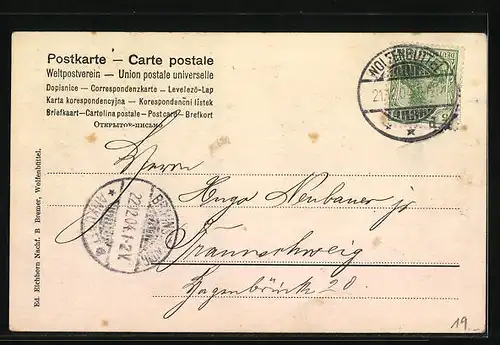 Postkarte — Carte postale
Weltpostverein — Union postale universelle
Dopisnice — Correspondenzkarte — Levelező-Lap
Karta korespondencyjna — Korespondenční lístek
Briefkaart — Cartolina postale — Postcard — Brefkort
Открытое письмо
WOLFENBÜTTEL
Herrn
Hugo Neubauer jr
Braunschweig
Hagenbrück 20
22.12.04. 1-2 V.
Ed. Eichhorn Nachf. B Bremer, Wolfenbüttel.
19.-